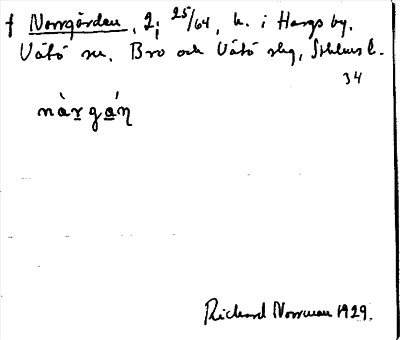 f Norrgården, 2; 25/64, h. i Hargs by.
Vätö sn. Bro och Vätö slg, Sthlms l.
34
nàrgán
Richard Norrman 1929.